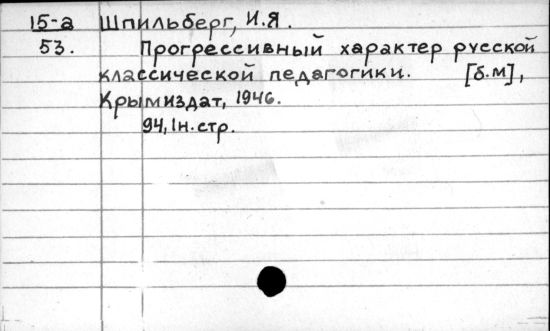 15-а Шпильберг, И.Я.
53. Прогрессивный характер русской
классической педагогики. [б.м],
Крымиздат, 1946.
94, 1н. стр.